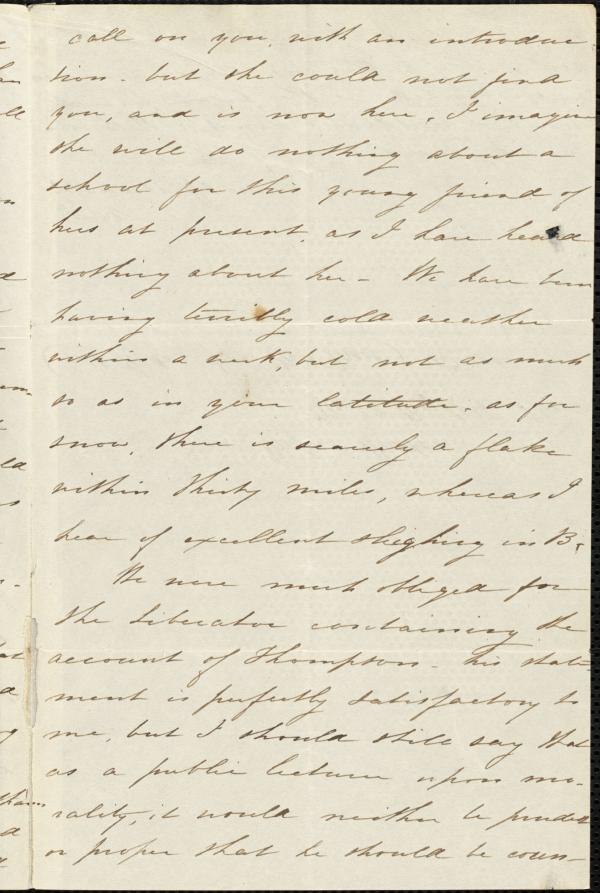 call on you, with an introduc
tion - but she could not find
you, and is now here, I imagine
she will do nothing about a
school for this young friend of
hers at present, as I have heard
nothing about her - We have been
having terribly cold weather
within a week, but not as much
so as in your latitude, as for
snow, there is scarcely a flake
within thirty miles, whereas I
hear of excellent sleighing in B.
We were much obliged for
the Liberator containing the
account of Thompson - his state
ment is perfectly satisfactory to
me, but I should still say that
as a public lecturer upon mo-
rality, it would neither be prudent
or proper that he should be coun-